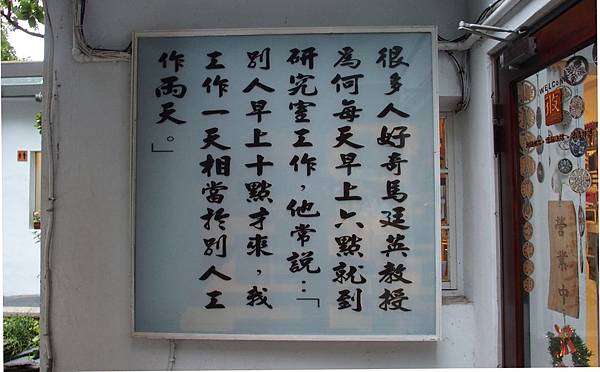 很多人好奇馬廷英教授
為何每天早上六點就到
研究室工作，他常說：「
別人早上十點才來，我
工作一天相當於別人工
作兩天。」
WELCO
營業中